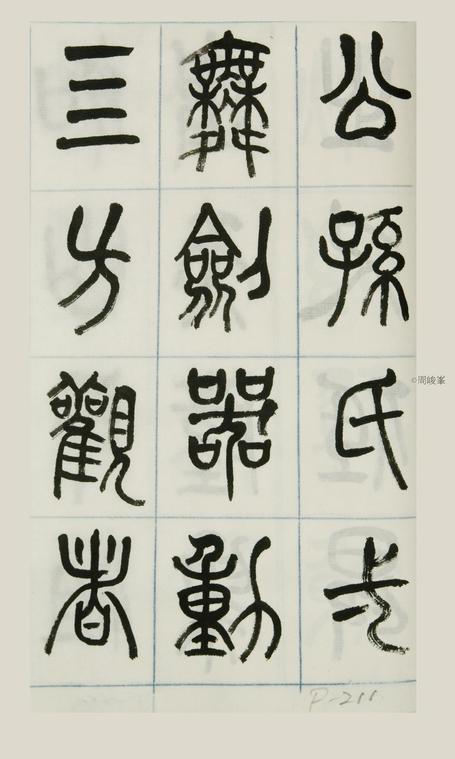 公孫氏一
舞劍器動
四方觀者
©周峻峯
P-211